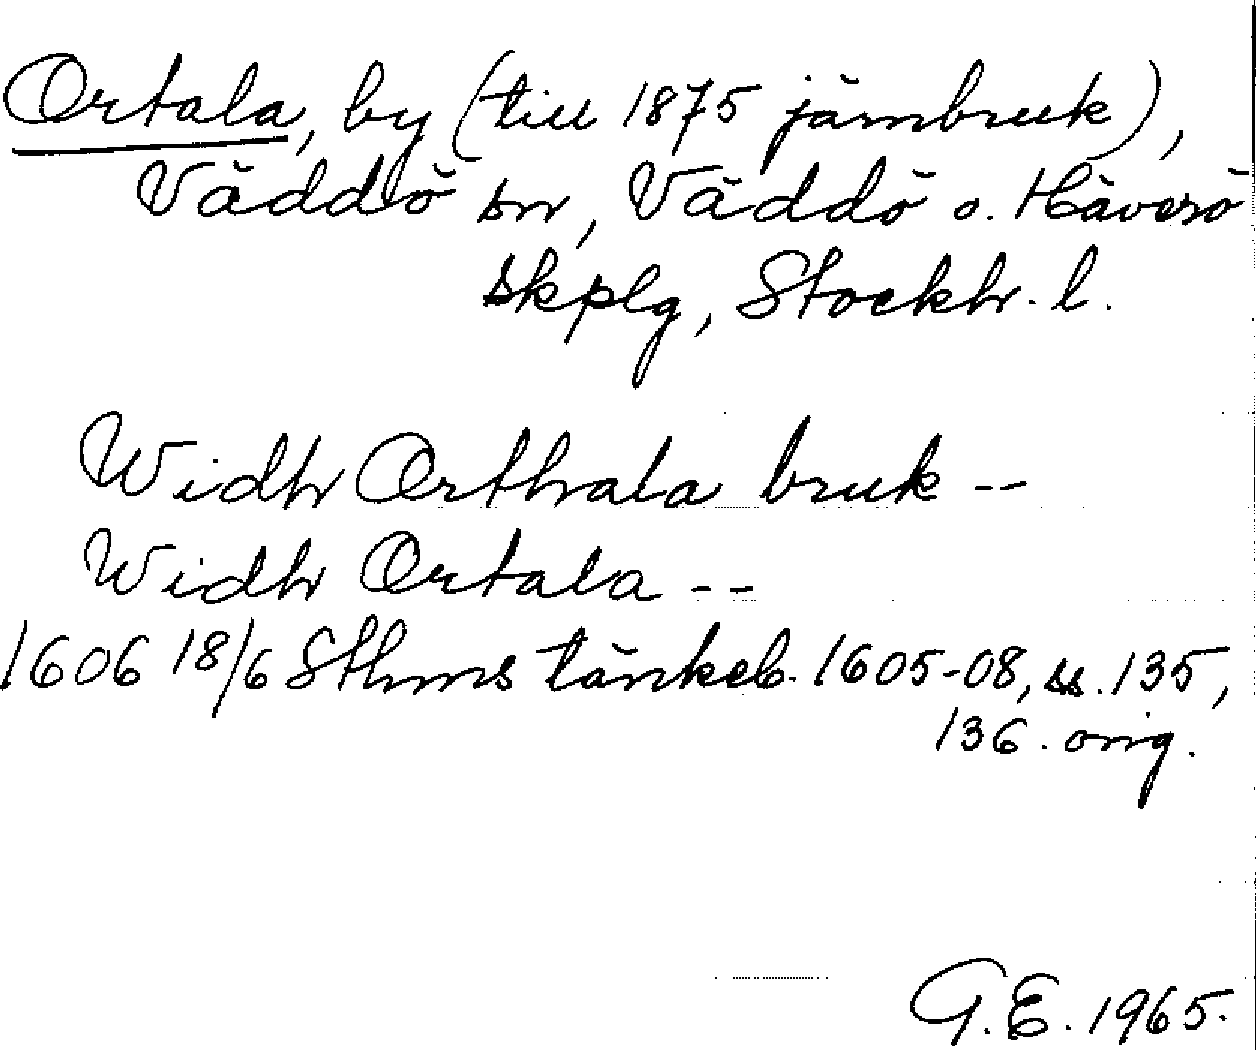 Ortala, by (till 1875 järnbruk),
Väddö sn, Väddö o. Häverö
skplg, Stockh. l.
Widh Orthala bruk --
Widh Ortala --
1606 18/6 Sthms tänkeb. 1605-08, ss. 135,
136. orig.
G.E. 1965.